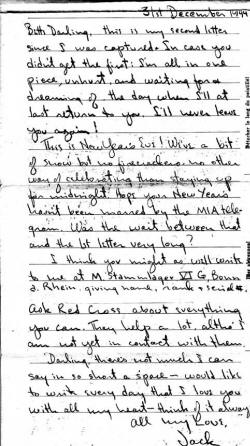 31st December 1944
Beth Darling, this is my second letter
since I was captured. In case you
didn't get the first: I'm all in one
piece, unhurt, and waiting for &
dreaming of the day when I'll at
last return to you. I'll never leave
you again!
This is New Year's Eve! We've a bit
of snow but no firecrackers, no other
way of celebrating than staying up
for midnight. Hope your New Year's
hasn't been marred by the MIA tele-
gram. Was the wait between that
and the 1st letter very long?
I think you might as well write
to me at M. Stammlager VI G, Bonn
a. Rhein, giving name, rank & serial #.
Ask Red Cross about everything
you can. They help a lot, altho' I
am not yet in contact with them.
Darling, there's not much I can
say in so short a space – would like
to write every day that I love you
with all my heart – think of it always.
All my Love,
Jack